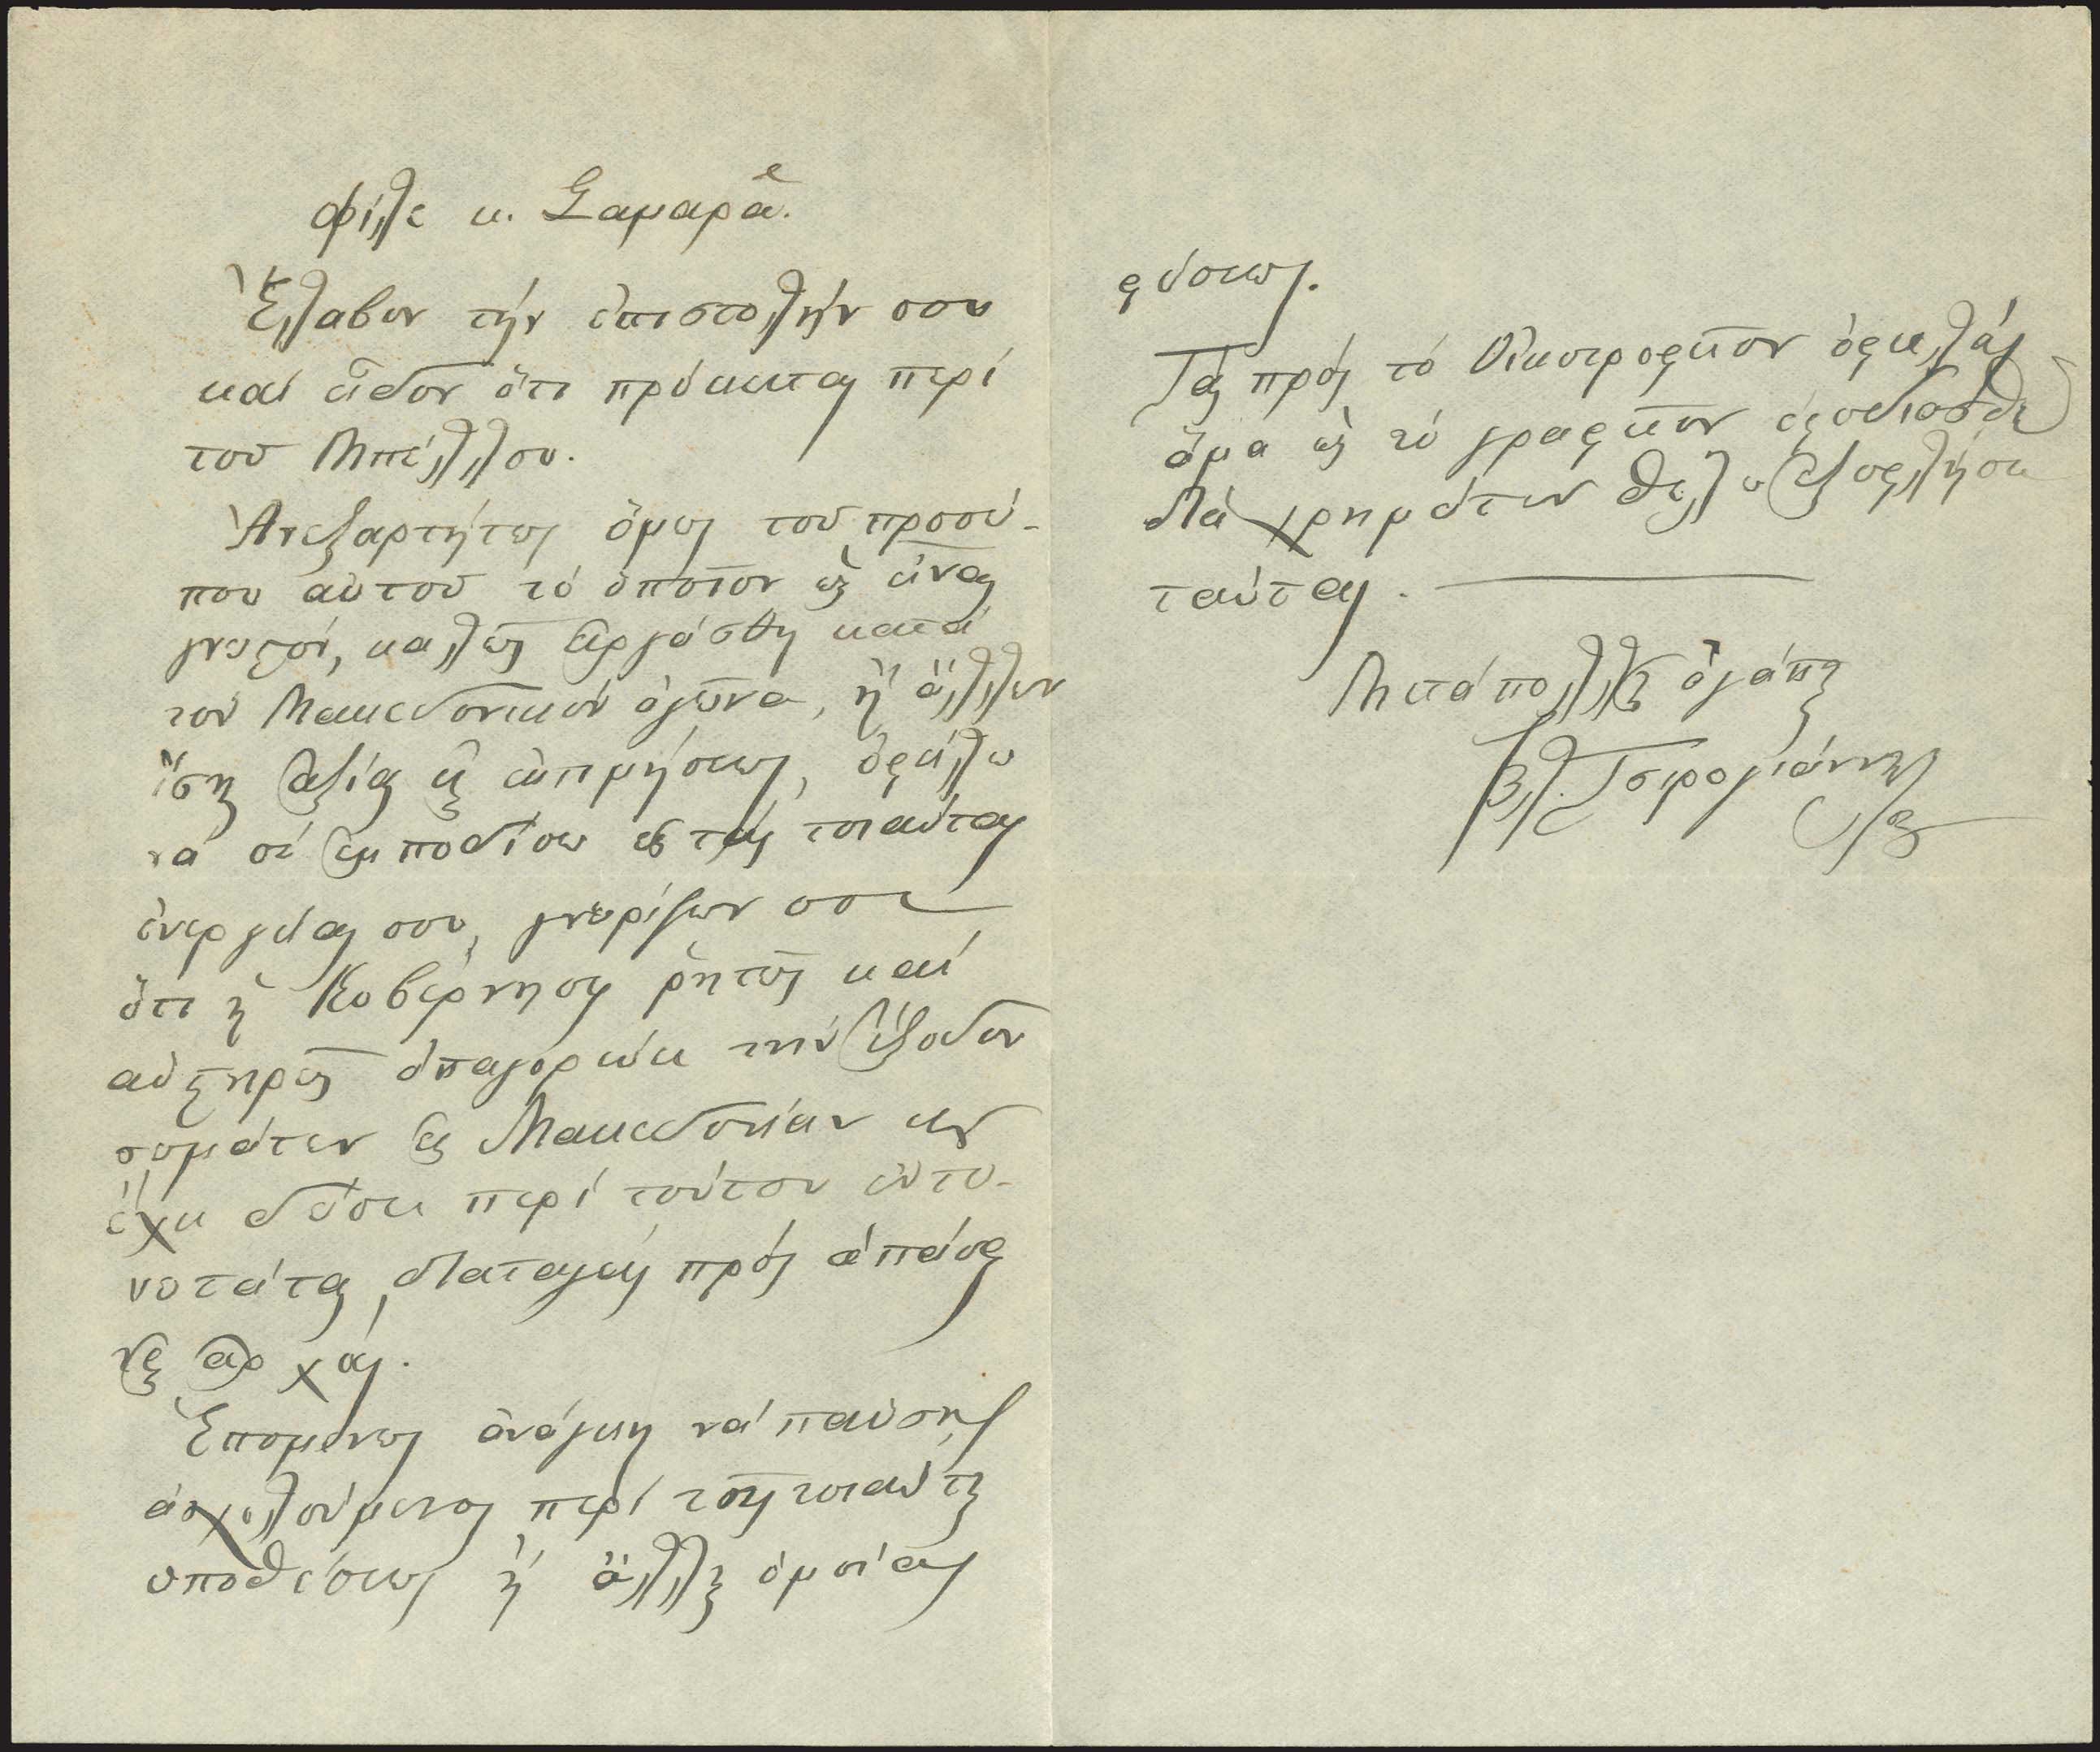 Φίλε κ. Σαμαρᾶ.
Ἔλαβον τήν ἐπιστολήν σου
καί εἶδον ὅτι πρόκειται περί
τοῦ Μπέλλου.
Ἀνεξαρτήτως ὅμως τοῦ προσώ-
που αὐτοῦ τό ὁποῖον ὡς εἶναι
γνωστόν, καλῶς εἰργάσθη κατά
τόν Μακεδονικόν ἀγῶνα, ἤ ἄλλων
ἴσης ἀξίας ἐκτιμήσεως, ὀφείλω
νά σέ ἐμποδίσω εἰς τάς τοιαύτας
ἐνεργείας σου, γνωρίζων σοι
ὅτι ἡ Κυβέρνησις ῥητῶς καί
αὐστηρῶς ἀπαγορεύει τήν ἔξοδον
σωμάτων εἰς Μακεδονίαν καί
ἔχει δώσει περί τούτου ἐντο-
νωτάτας διαταγάς πρός ἁπάσας
τάς ἀρχάς.
Ἑπομένως ἀνάγκη νά παύσῃς
ἀσχολούμενος περί τῆς τοιαύτης
ὑποθέσεως ἤ ἄλλης ὁμοίας
φύσεως.
Τάς πρός τό Οἰκοτροφεῖον ὀφειλάς
ἅμα ὡς τό γραφεῖον ἐφοδιασθῇ
διά χρημάτων θέλω ἐξοφλήσει
ταύτας.
Μετά πολλῆς ἀγάπης
Β. Τσιρογιάννης